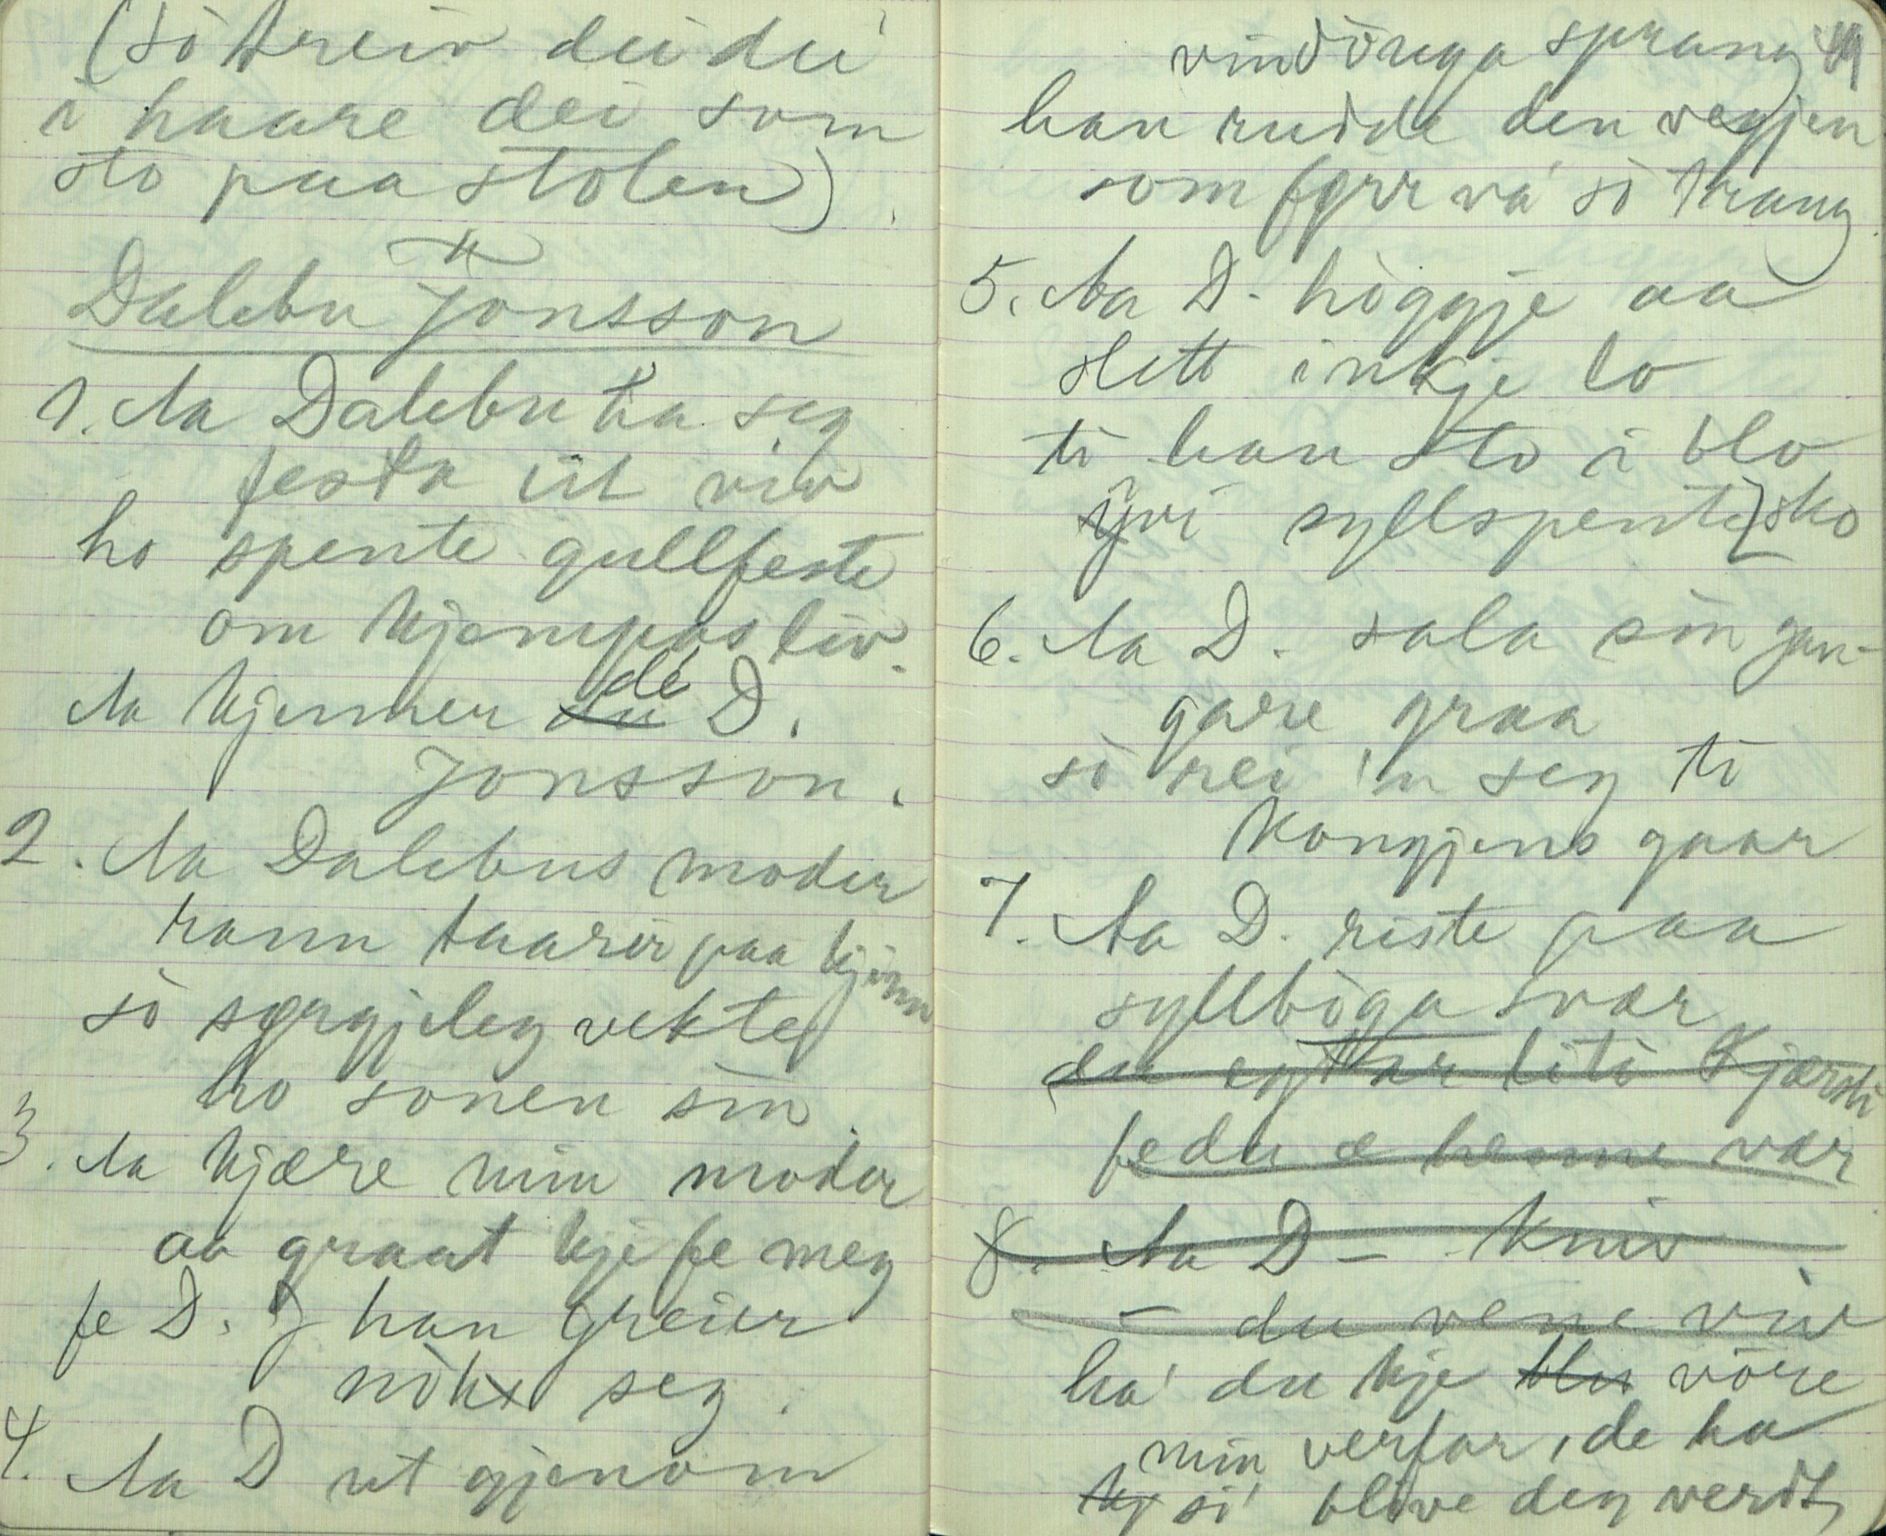 (sò treiv dei dei
i haare dei som
sto paa stolen).
Dalebu Jonsson
1. Aa Dalebu ha seg
festa üt viv
ho spente gullfeste
om kjempas liv.
Aa kjenner de D.
Jonsson.
2. Aa Dalebus moder
rann taarir paa kjinn
sò sørgjeleg vekte
ho sonen sin.
3. Aa kjære min moder
aa graat kje fe meg
fe D. J han greier
nòk seg.
4. Aa D ut gjenom
vindöuga sprang
49
han rudde den vegjen
som førr va' sò trang
5. Aa D. höggje aa
slett inkje lo
ti han sto i blo
yvi syllspente sko
6. Aa D. sala sin gan-
gare graa
sò rei 'n seg ti
kongjens gaar
7. Aa D. riste paa
syllbòga svær
du eg tar liti Kjærsti
fedu æ henne vær
8. Aa D – Kniv
– du vene viv
ha' du kje blu vöre
min verfar, de ha
si' blive deg verdt